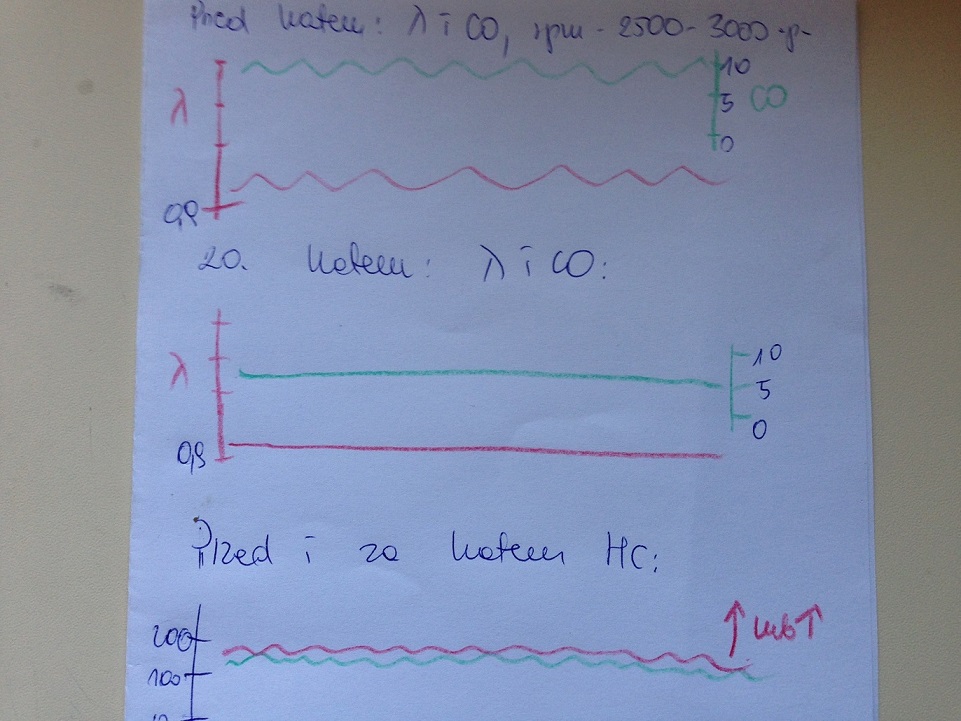 Przed katem: λ i CO, rpm - 2500 - 3000
10
λ 5 CO
0
0,9
za katem: λ i CO:
10
λ 5
0,9 0
Przed i za katem HC:
200 ↑ lub ↑
100